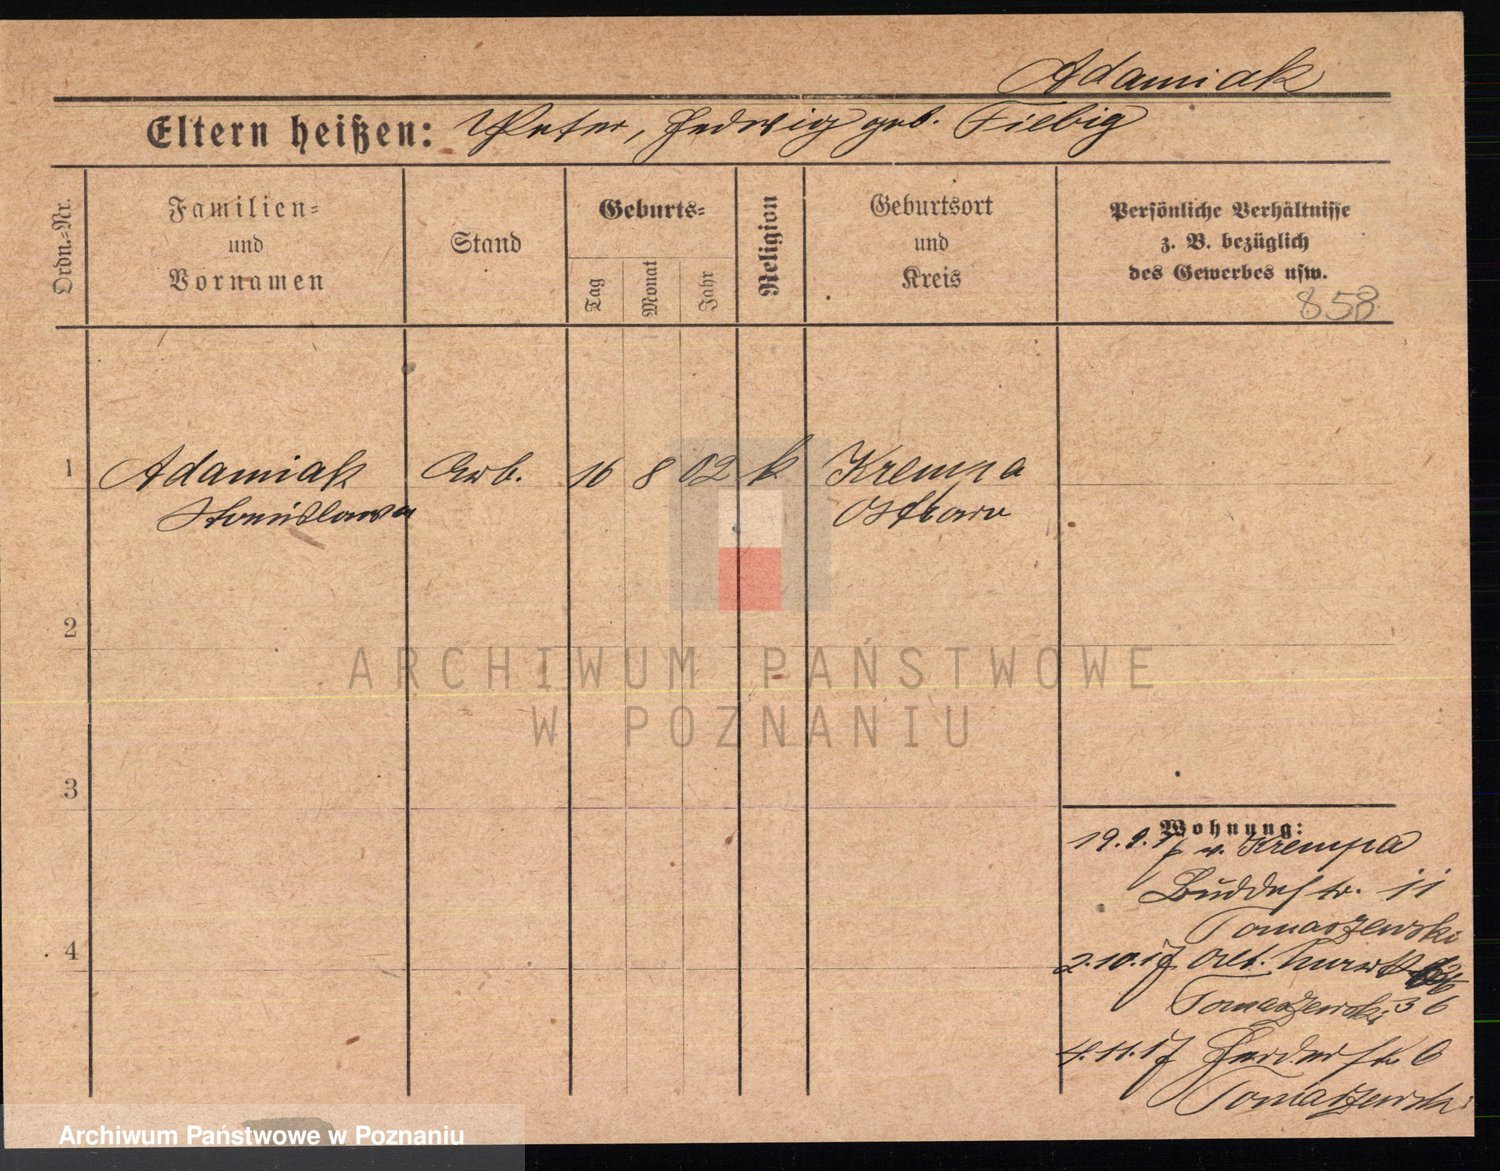 Adamiak
Eltern heißen: Peter, Hedwig geb. Fiebig
Ordn.-Nr.
Familien-
und
Vornamen
Stand
Geburts-
Tag
Monat
Jahr
Religion
Geburtsort
und
Kreis
Persönliche Verhältnisse
z. B. bezüglich
des Gewerbes usw.
858
1 Adamiak Arb. 16 8 02 k Krempa
Stanislawa Ostrowo
2
ARCHIWUM PAŃSTWOWE
W POZNANIU
3
Wohnung:
19.9.17 v. Krempa
Buddestr. 11
Tomaszewski
4
2.10.17 Alt. Markt
Tomaszewski 36
4.11.17 Herderstr. 6
Tomaszewski
Archiwum Państwowe w Poznaniu